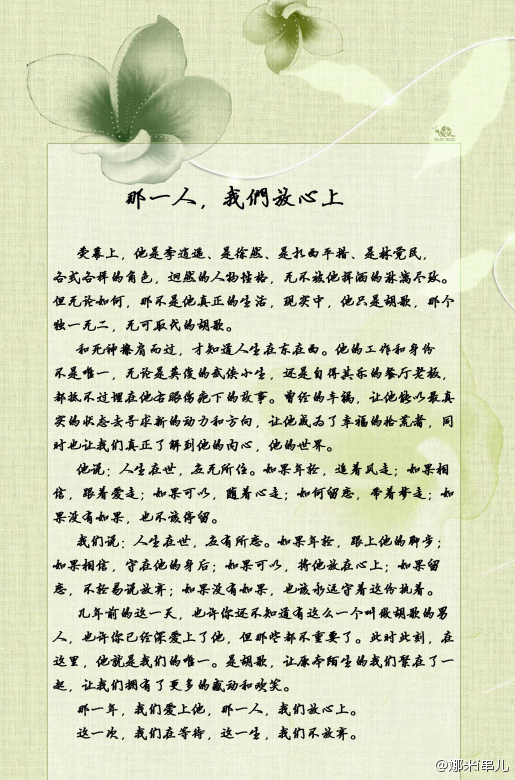 那一人，我們放心上
荧幕上，他是李逍遥、是徐然、是扎西平措、是林觉民，
各式各样的角色，迥然的人物性格，无不被他挥洒的淋漓尽致。
但无论如何，那不是他真正的生活，现实中，他只是胡歌，那个
独一无二，无可取代的胡歌。
和死神擦肩而过，才知道人生在东在西。他的工作和身份
不是唯一，无论是英俊的武侠小生，还是自得其乐的餐厅老板，
都抵不过埋在他右眼伤疤下的故事。曾经的车祸，让他能以最真
实的状态去寻求新的动力和方向，让他成为了幸福的拾荒者，同
时也让我们真正了解到他的内心，他的世界。
他说：人生在世，应无所住。如果年轻，追着风走；如果相
信，跟着爱走；如果可以，随着心走；如何留恋，带着梦走；如
果没有如果，也不该停留。
我们说：人生在世，应有所恋。如果年轻，跟上他的脚步；
如果相信，守在他的身后；如果可以，将他放在心上；如果留
恋，不轻易说放弃；如果没有如果，也该永远守着这份执着。
几年前的这一天，也许你还不知道有这么一个叫做胡歌的男
人，也许你已经深爱上了他，但那些都不重要了。此时此刻，在
这里，他就是我们的唯一。是胡歌，让原本陌生的我们聚在了一
起，让我们拥有了更多的感动和欢笑。
那一年，我们爱上他，那一人，我们放心上。
这一次，我们在等待，这一生，我们不放弃。
@娜米i串儿